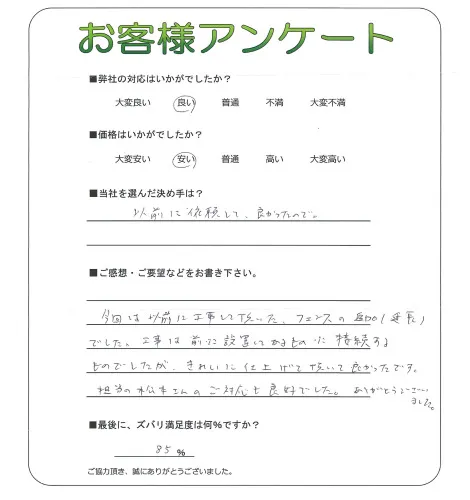 お客様アンケート
■弊社の対応はいかがでしたか?
大変良い 良い 普通 不満 大変不満
■価格はいかがでしたか?
大変安い 安い 普通 高い 大変高い
■当社を選んだ決め手は?
以前に依頼して、良かったので。
■ご感想・ご要望などをお書き下さい。
今回は以前に工事して頂いた、フェンスの
でした。工事は前に設置してあるものに接続する
ものでしたが、きれいに仕上げて頂いて良かったです。
担当の松本さんのご対応も良好でした。ありがとうございました。
■最後に、ズバリ満足度は何%ですか?
85%
ご協力頂き、誠にありがとうございました。